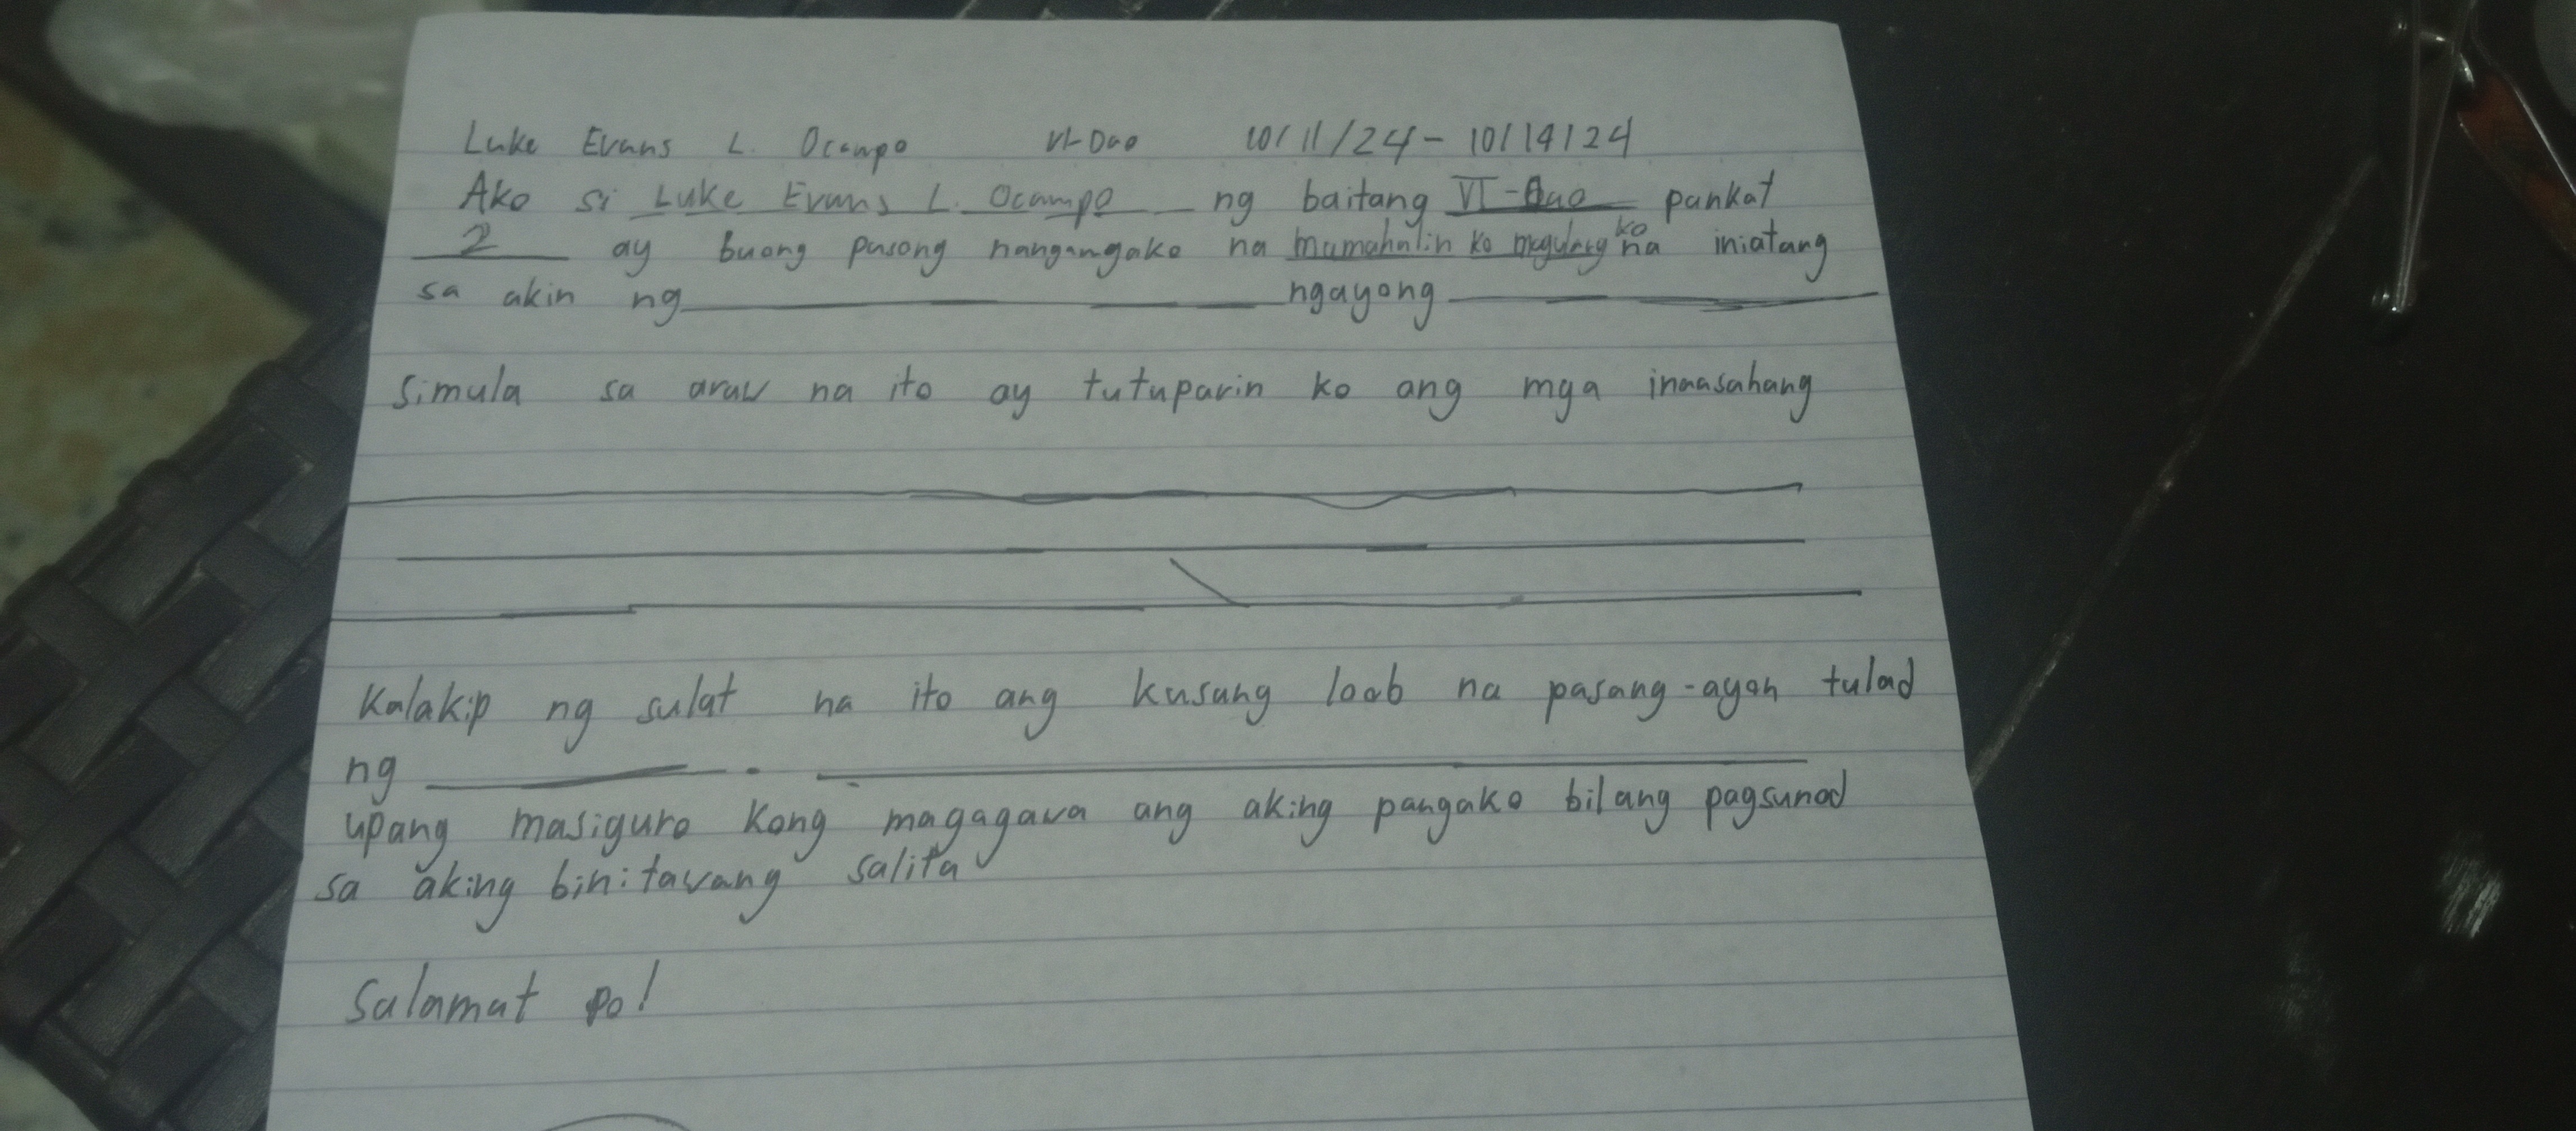 Luke Evans L. Ocampo VI-Dao 10/11/24 - 10/14/24
Ako si Luke Evans L. Ocampo ng baitang VI-Dao pankat
2 ay buong pusong nangangako na mamahalin ko magulang ko na iniatang
sa akin ng ngayong
Simula sa araw na ito ay tutuparin ko ang mga inaasahang
Kalakip ng sulat na ito ang kusang loob na pasang-ayon tulad
ng
upang masiguro kong magagawa ang aking pangako bilang pagsunod
sa aking binitawang salita
Salamat po!